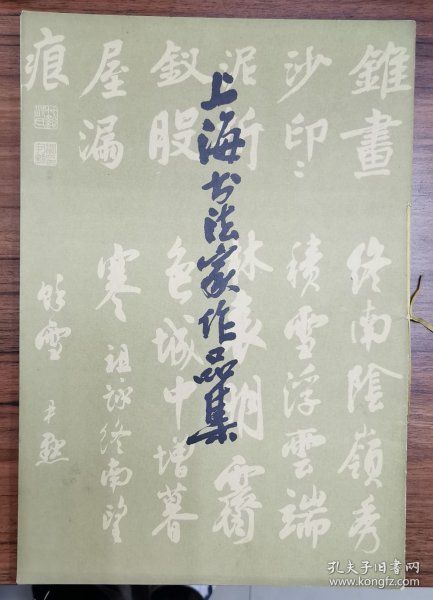 上海书法家作品集
錐畫
沙印〻
泥折
釵股
屋漏
痕
終南陰嶺秀
積雪浮雲端
林表明霽
色城中增暮
寒 祖詠終南望
餘雪 尹默
孔夫子旧书网
www.kongfz.com